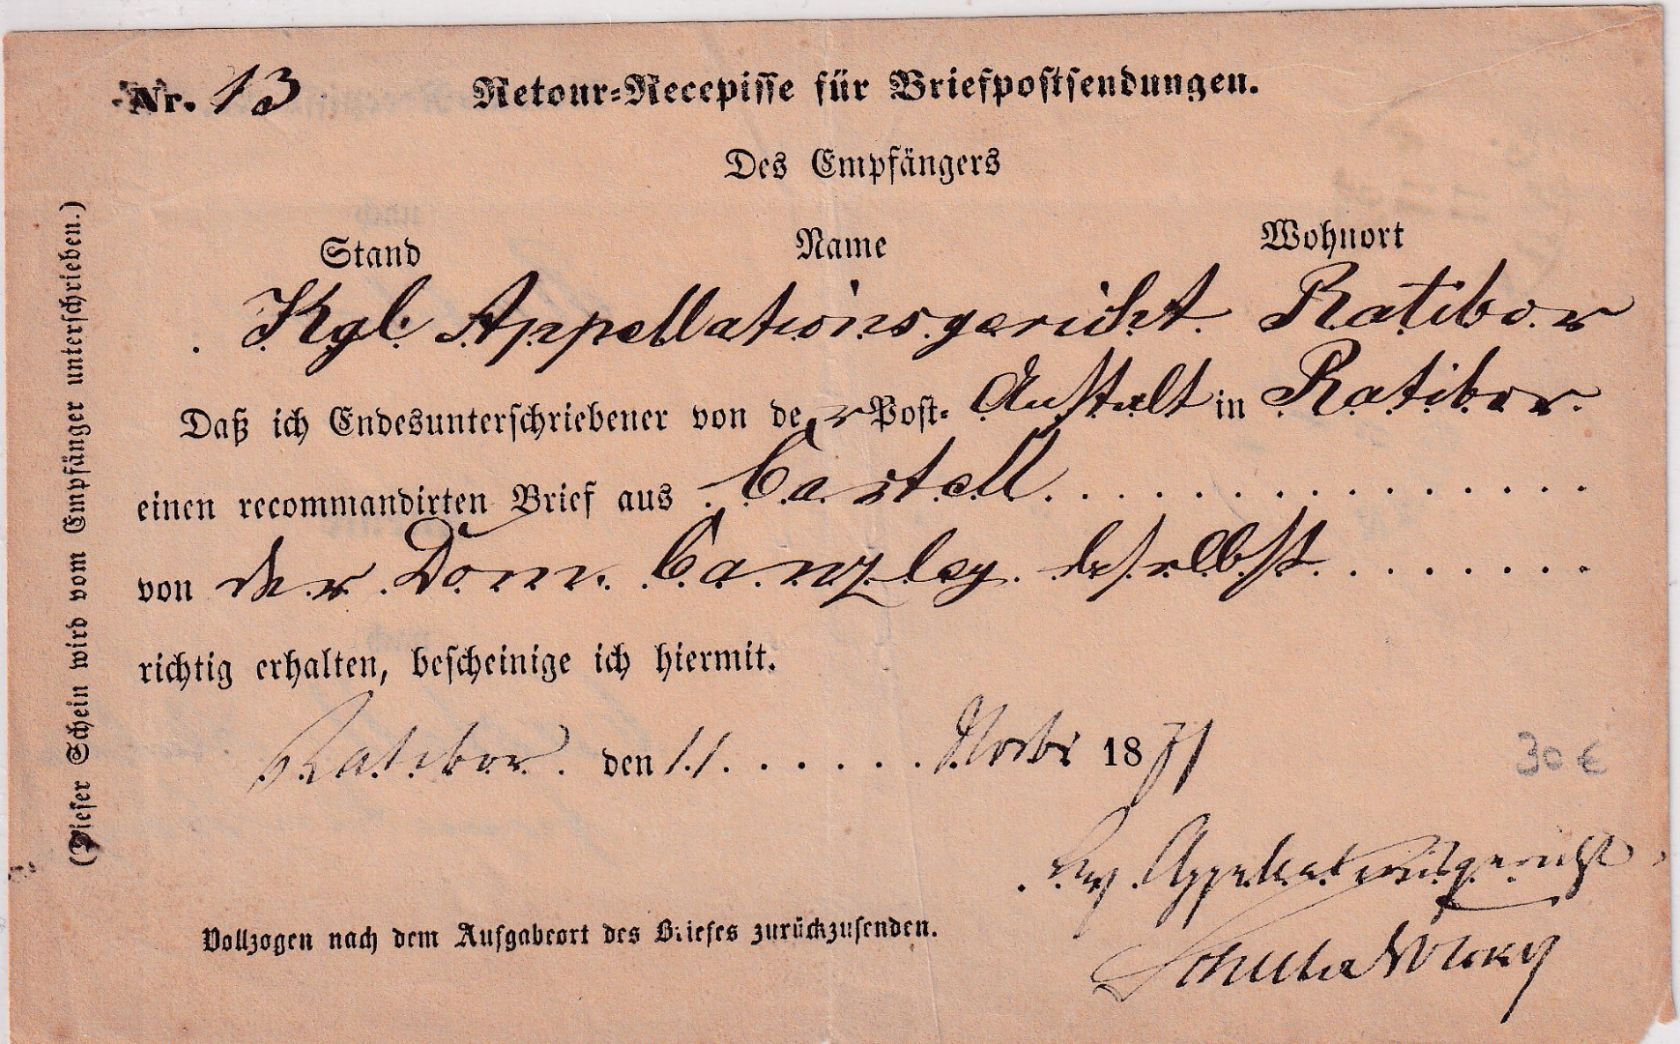 Nr. 13 Retour-Recepisse für Briefpostsendungen.
Des Empfängers
Stand Name Wohnort
Kgl. Appellationsgericht Ratibor
Daß ich Endesunterschriebener von der Post-Anstalt in Ratibor
einen recommandirten Brief aus Castell
von der Dom. Canzley daselbst
richtig erhalten, bescheinige ich hiermit.
Ratibor den 11 Novbr 1871
30 €
Appellationsgericht
Vollzogen nach dem Aufgabeort des Briefes zurückzusenden.
(Dieser Schein wird vom Empfänger unterschrieben.)